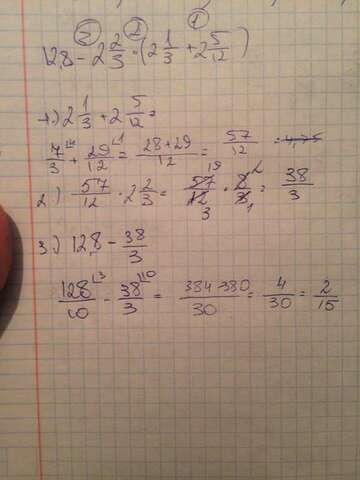 ③ ② ①
12,8 - 2 2/3 · (2 1/3 + 2 5/12)
1.) 2 1/3 + 2 5/12 =
7/3 + 29/12 = 28+29/12 = 57/12 = 4,75
2.) 57/12 · 2 2/3 = 57/12 · 8/3 = 38/3
3.) 12,8 - 38/3
128/10 - 38/3 = 384-380/30 = 4/30 = 2/15